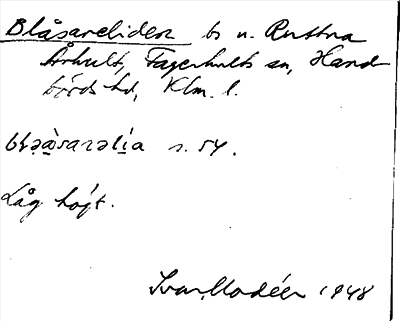 Blåsareliden bs u. Ruttna
Århult, Fagerhults sn, Hand
börds hd, Klm. l.
s. 54.
Låg höjt.
Ivar Modéer 1948